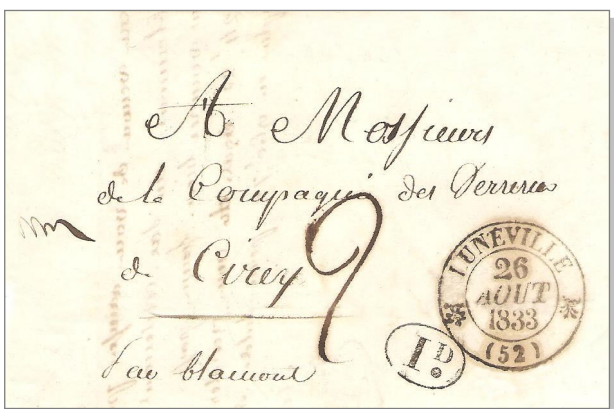 A Messieurs
de la Compagnie des Verreries
de Cirey
2
par blamont
LUNEVILLE
26
AOUT
1833
(52)
1 D.